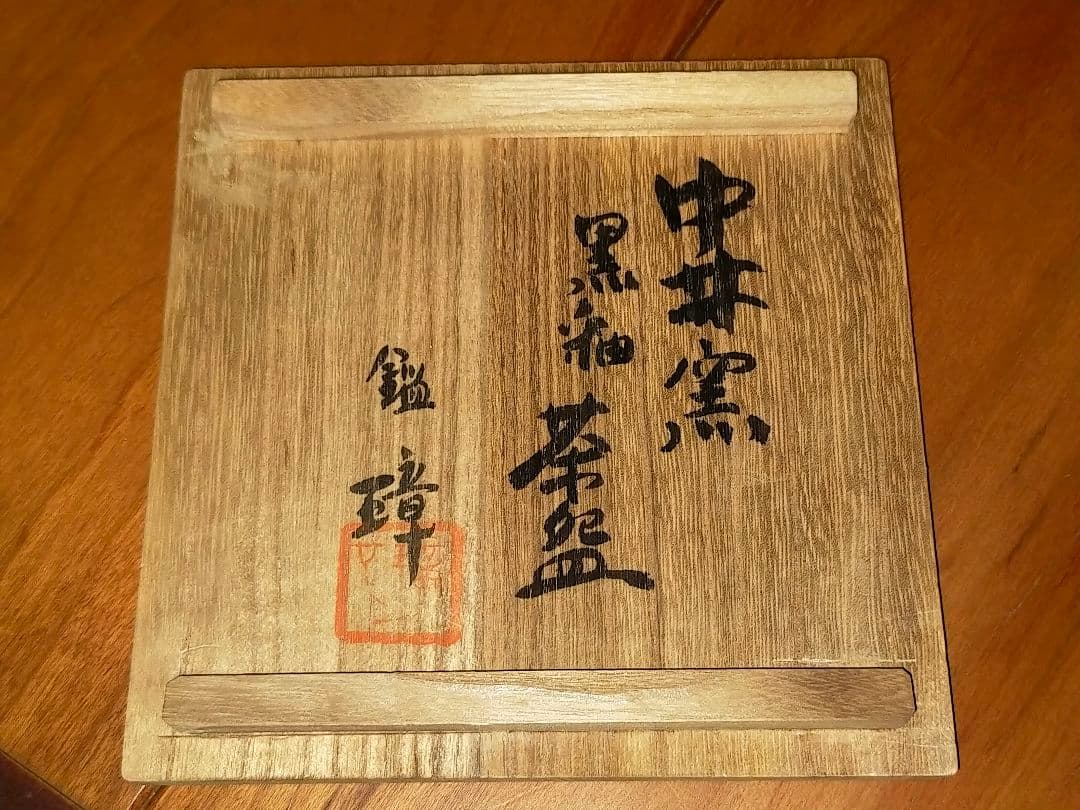 中井窯
黒釉 茶盌
鑑 璋